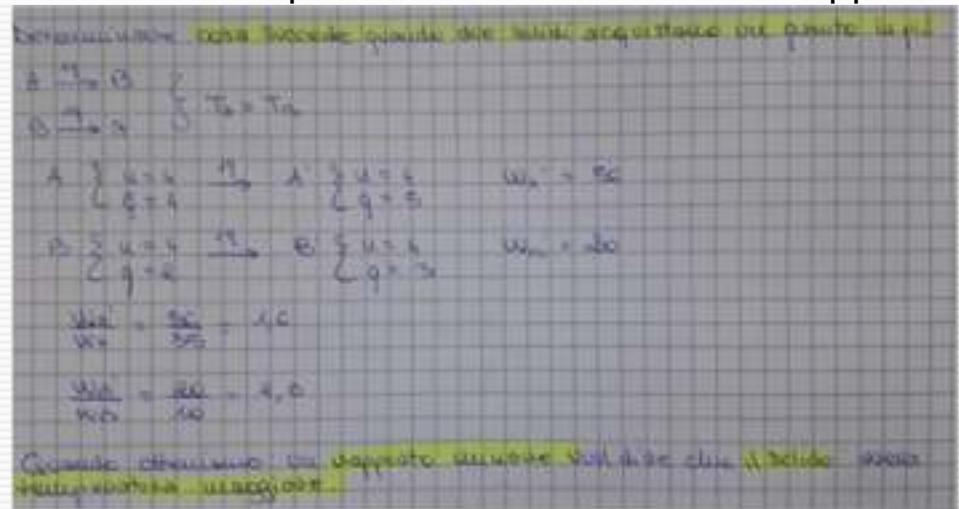 Determinare cosa succede quando due solidi acquistano un quanto in più.
A q→ B
B q→ A } TA > TB
A { u = 4 q = 4 q→ A' { u = 4 q = 5 WA' = 56
B { u = 4 q = 2 q→ B { u = 4 q = 3 = 20
WA' / WA = 56 / 35 = 1,6
= 20 / 10 = 2,0
Quando otteniamo un rapporto minore vuol dire che il solido aveva
temperatura maggiore.